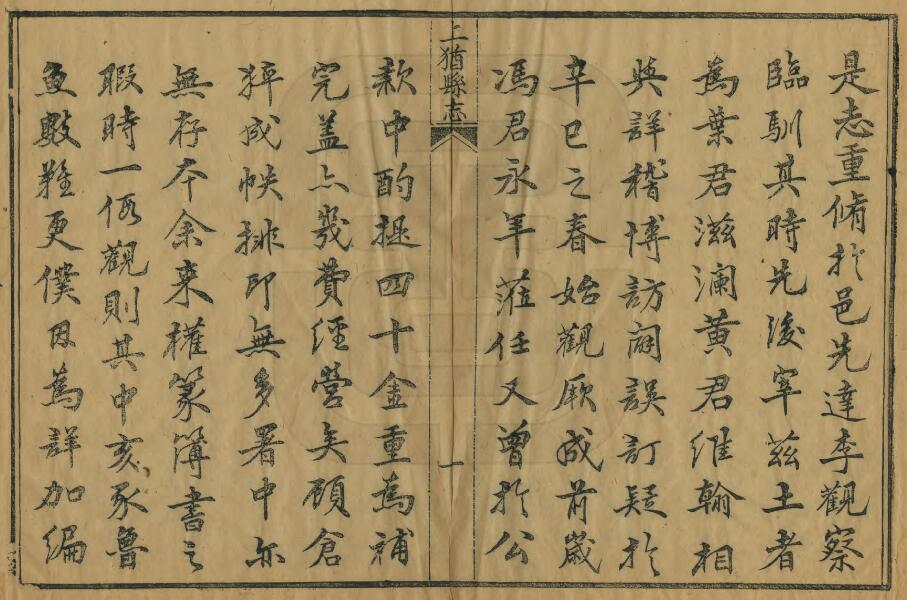 是志重脩於邑先達李觀察
臨馴其時先後宰茲土者
為葉君滋瀾黃君維翰相
與詳稽博訪闕誤訂疑於
辛巳之春始觀厥成前歲
馮君永年蒞任又曾於公
上猶縣志
一
款中酌提四十金重為補
完盖亦幾費經營矣顧倉
猝成帙排印無多署中亦
無存本余来權篆簿書之
暇時一偶觀則其中亥豕魯
魚數難更僕因為詳加編